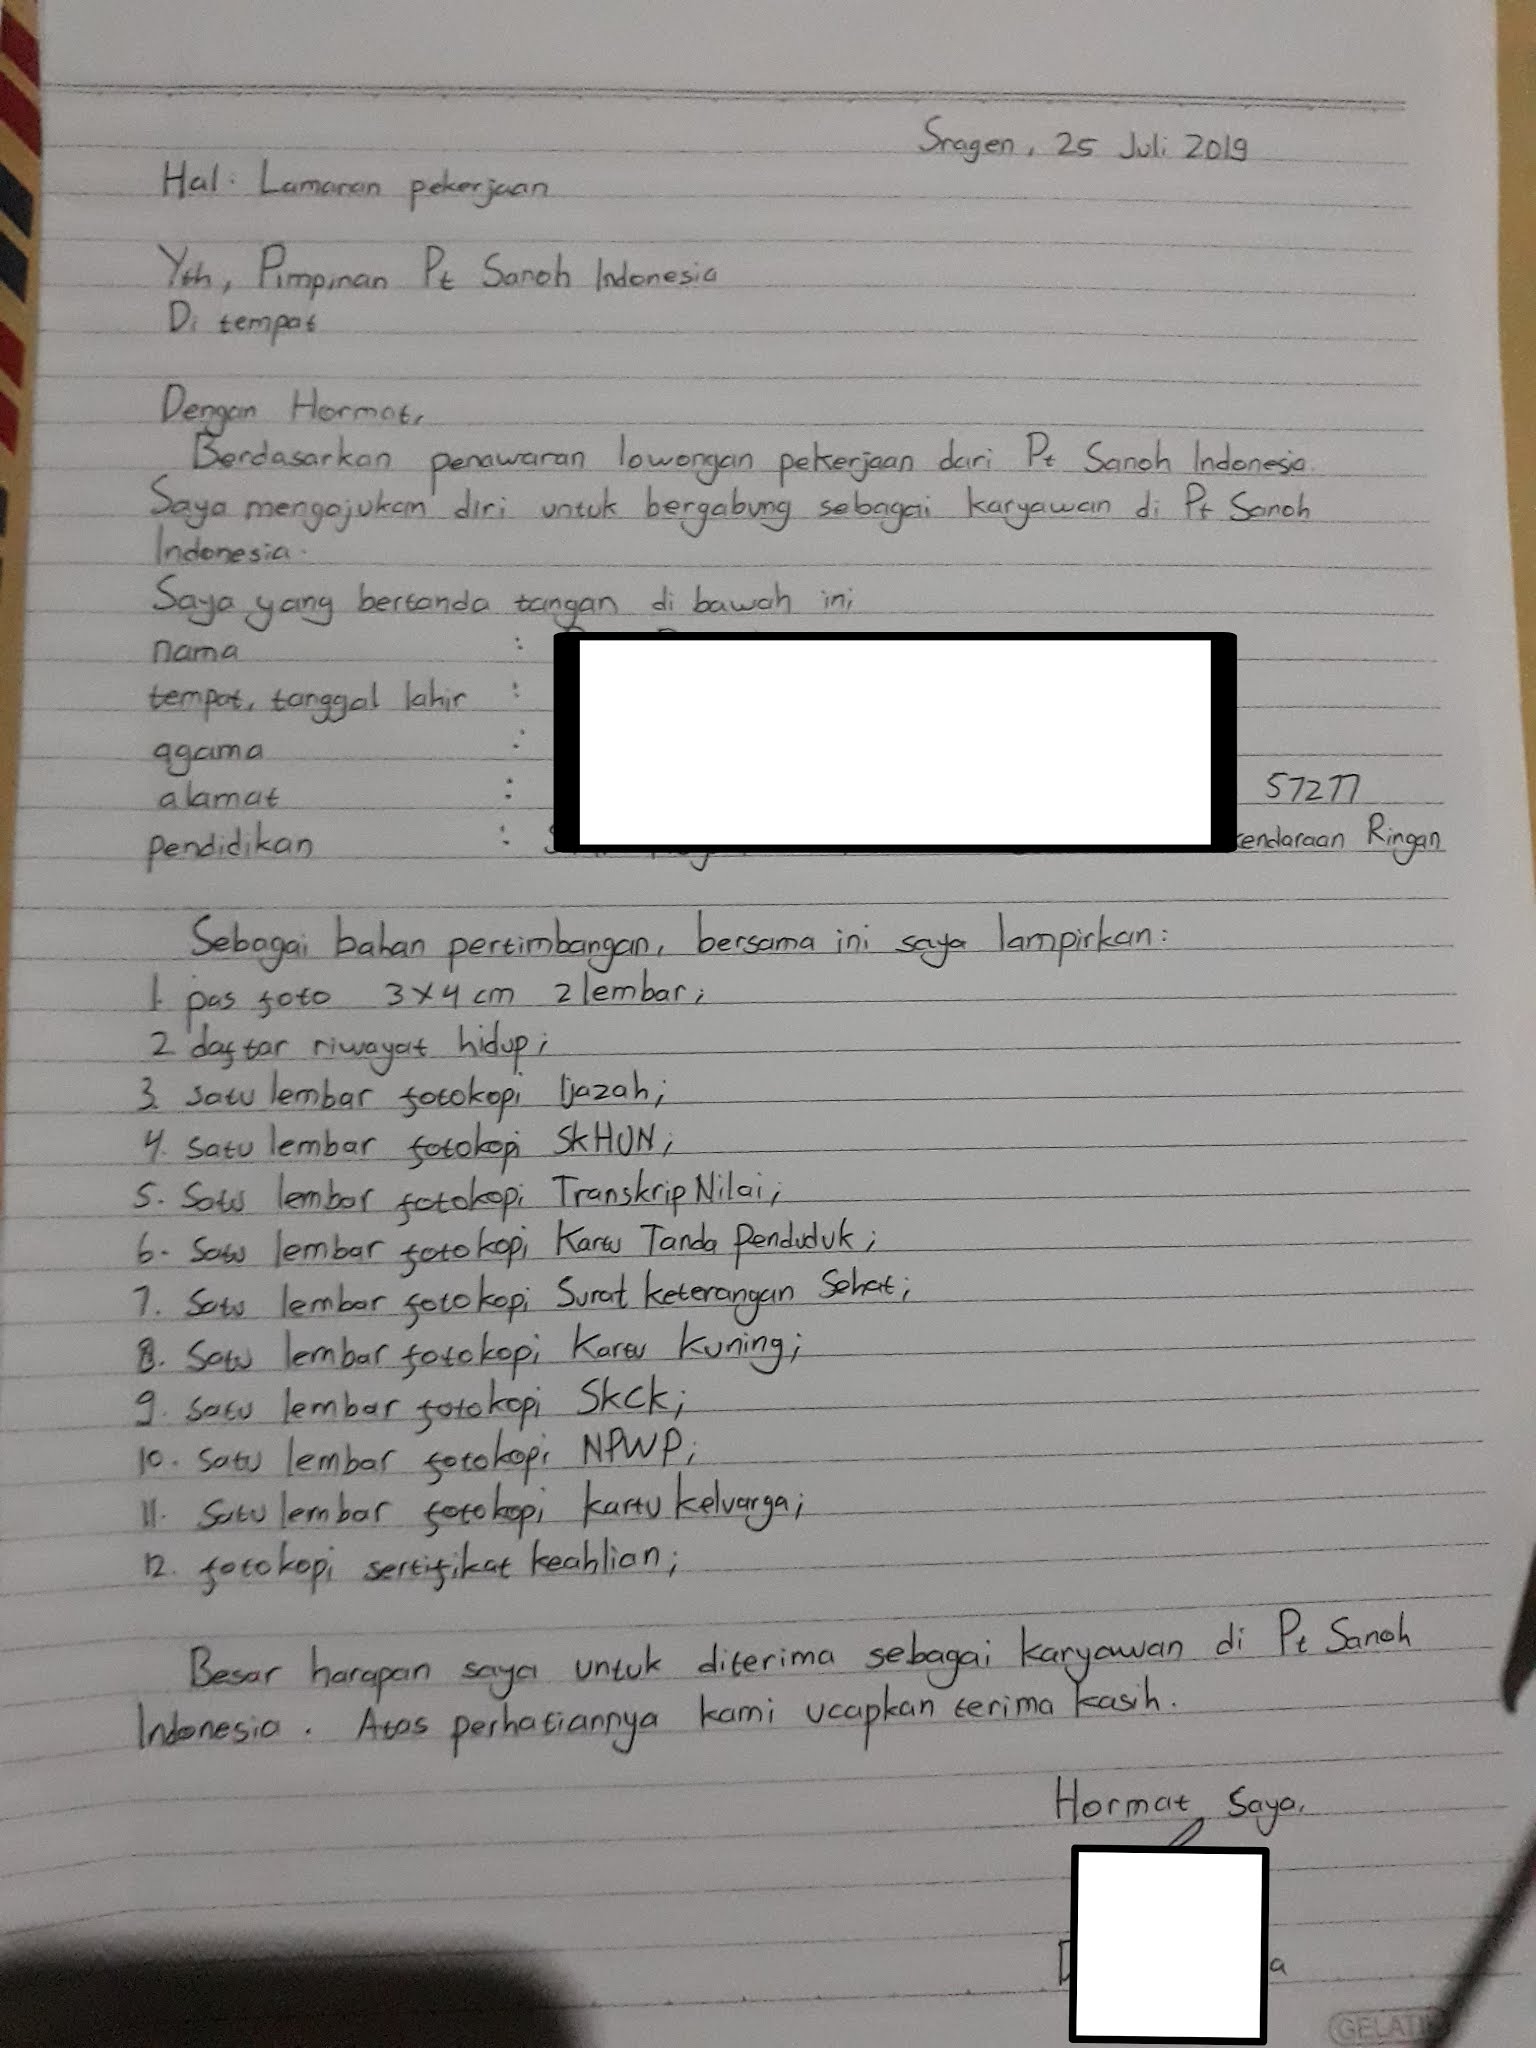 Sragen, 25 Juli 2019
Hal: Lamaran pekerjaan
Yth, Pimpinan Pt Sanoh Indonesia
Di tempat
Dengan Hormat,
Berdasarkan penawaran lowongan pekerjaan dari Pt Sanoh Indonesia.
Saya mengajukan diri untuk bergabung sebagai karyawan di Pt Sanoh
Indonesia.
Saya yang bertanda tangan di bawah ini
nama :
tempat, tanggal lahir :
agama :
alamat : 57277
pendidikan : kendaraan Ringan
Sebagai bahan pertimbangan, bersama ini saya lampirkan:
1. pas foto 3x4 cm 2 lembar;
2 daftar riwayat hidup;
3. satu lembar fotokopi Ijazah;
4. satu lembar fotokopi SKHUN;
5. Satu lembar fotokopi Transkrip Nilai;
6. Satu lembar fotokopi Kartu Tanda Penduduk;
7. Satu lembar fotokopi Surat keterangan Sehat;
8. Satu lembar fotokopi Kartu Kuning;
9. satu lembar fotokopi SKCK;
10. satu lembar fotokopi NPWP;
11. satu lembar fotokopi kartu keluarga;
12. fotokopi sertifikat keahlian;
Besar harapan saya untuk diterima sebagai karyawan di Pt Sanoh
Indonesia. Atas perhatiannya kami ucapkan terima kasih.
Hormat Saya,
GELATIK